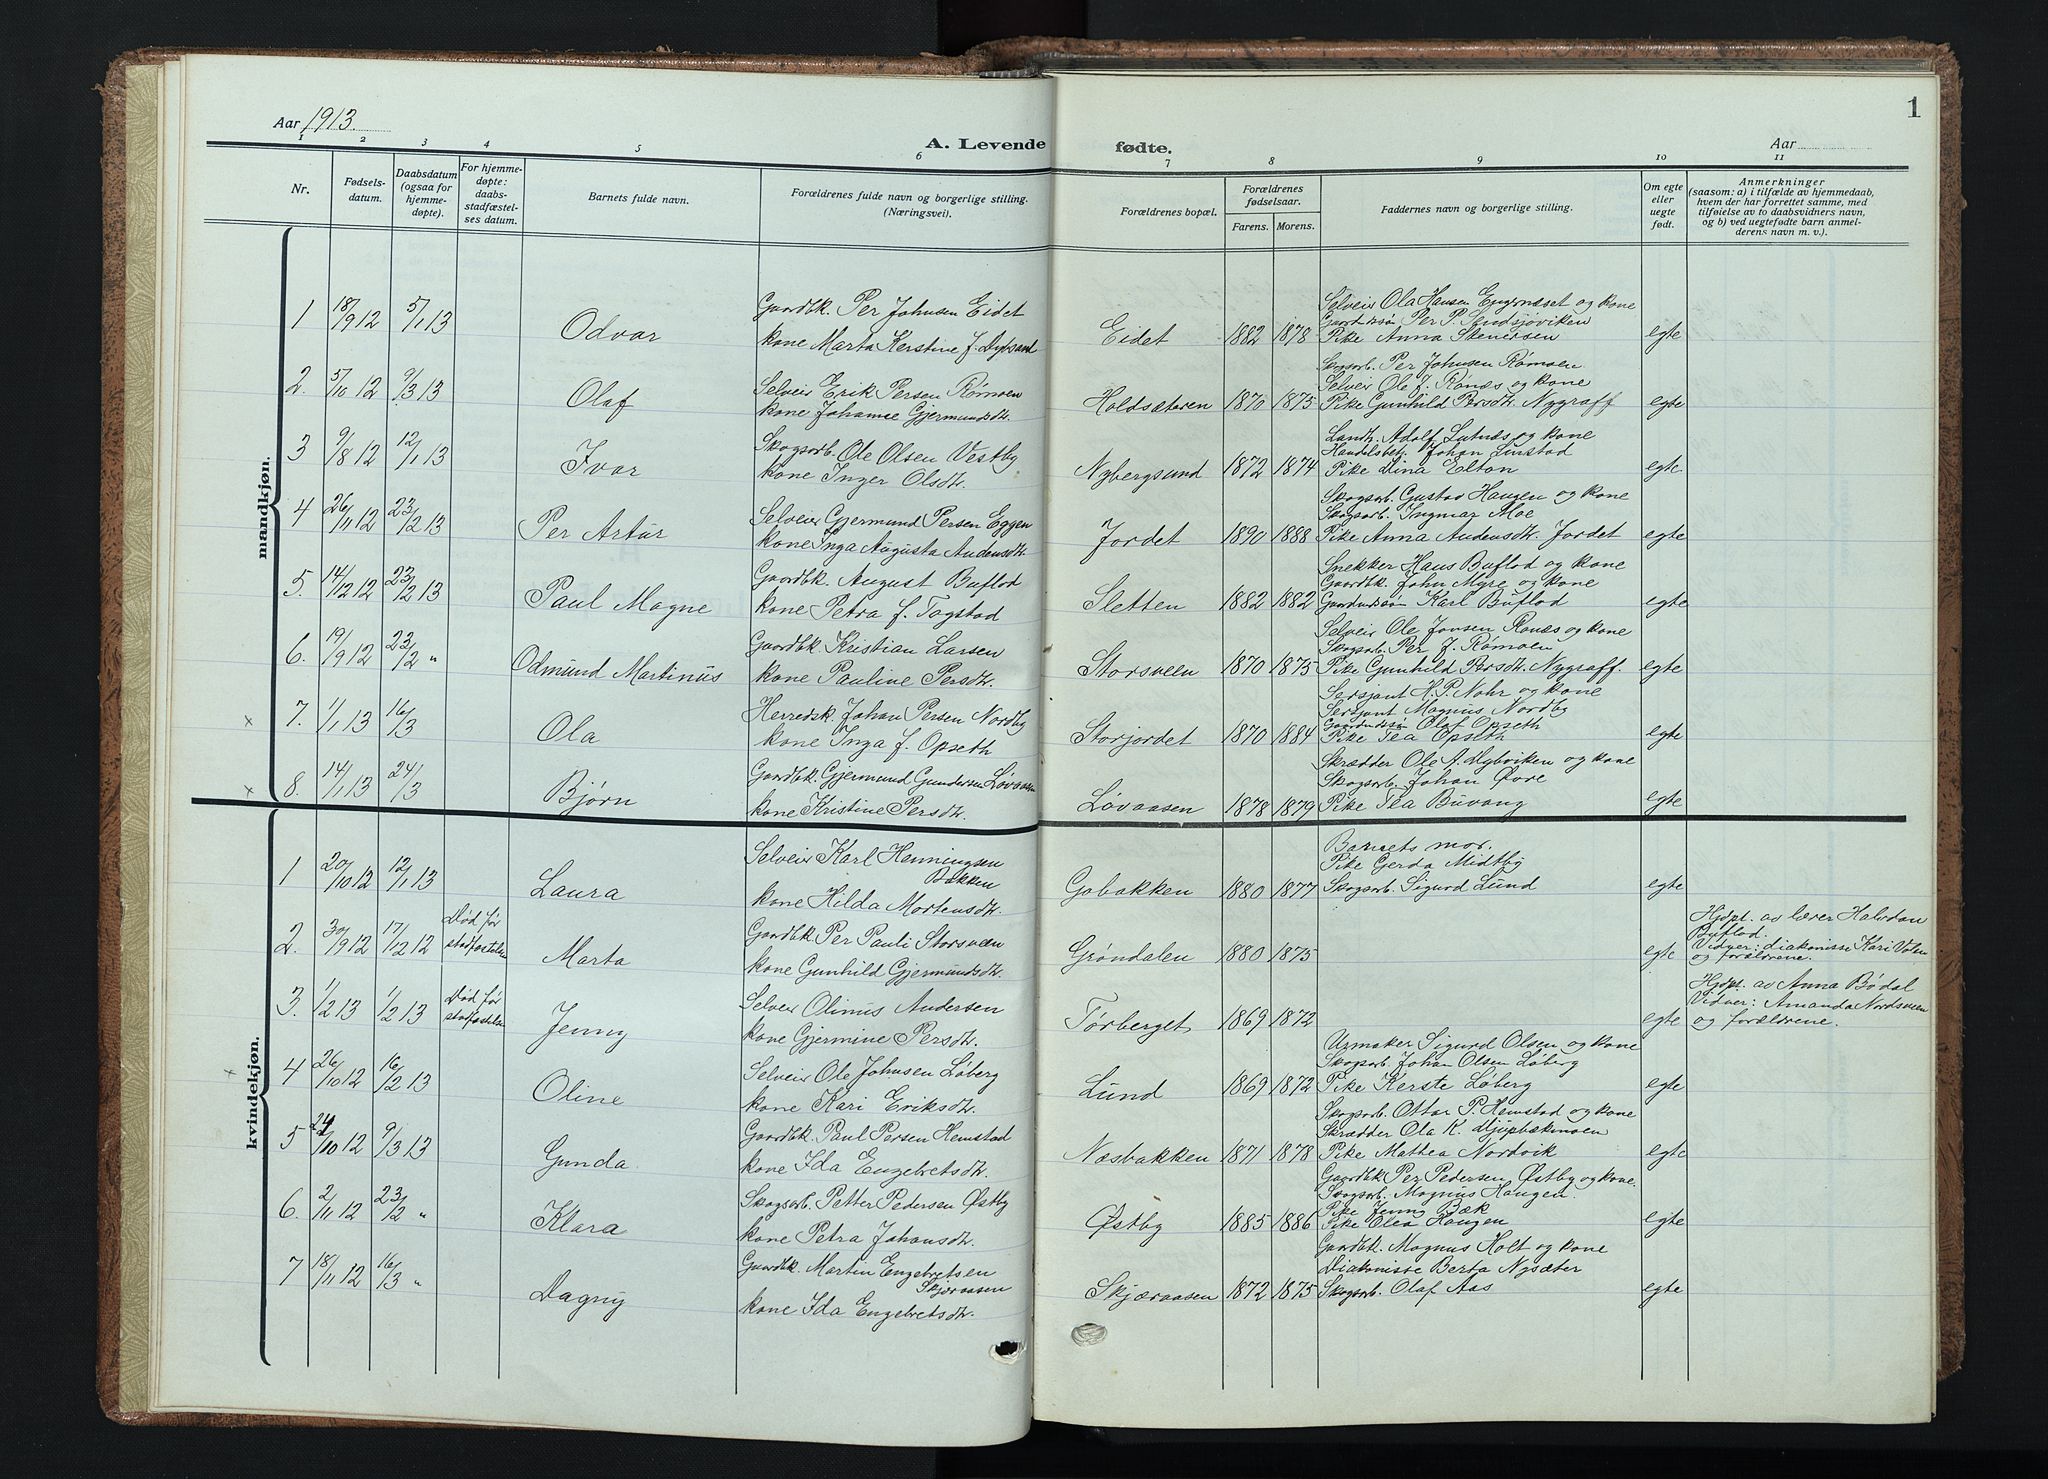 Aar 1913.
A. Levende fødte.
Aar
1
1 2 3 4 5 6 7 8 9 10 11
Nr.
Fødsels-
datum.
Daabsdatum
(ogsaa for
hjemme-
døpte).
For hjemme-
døpte:
daabs-
stadfæstel-
ses datum.
Barnets fulde navn.
Forældrenes fulde navn og borgerlige stilling.
(Næringsvei).
Forældrenes bopæl.
Forældrenes
fødselsaar.
Farens. Morens.
Faddernes navn og borgerlige stilling.
Om egte
eller
uegte
født.
Anmerkninger
(saasom: a) i tilfælde av hjemmedaab,
hvem der har forrettet samme, med
tilføielse av to daabsvidners navn,
og b) ved uegtefødte barn anmel-
derens navn m. v.).
mandkjøn.
1 18/9 12 5/1 13 Odvar
Gaardbk. Per Johnsen Eidet
kone Marta Kerstine f. Dybsand
Eidet 1882 1878
Selveier Ola Hansen Engernæset og kone
Gaardmdssøn Per P. Sendsjøviken
Pike Anna Stenersen
egte
2. 5/10 12 9/3 13 Olaf
Selveier Erik Persen Rømoen
kone Johanne Gjermundsdtr.
Holdsæteren 1870 1875
Skogsarb. Per Johnsen Rømoen
Selveier Ole J. Rønæs og kone
Pike Gunhild Persdtr. Nygraff
egte
3 9/8 12 12/1 13 Ivar
Skogsarb. Ole Olsen Vestby
kone Inger Olsdtr.
Nybergsund 1872 1874
Landh. Adolf Lutnæs og kone
Handelsbet. Johan Linstad
Pike Dina Elton
egte
4 26/11 12 23/2 13 Per Artur
Selveier Gjermund Persen Eggen
kone Inga Augusta Andersdtr.
Jordet 1890 1888
Skogsarb. Gustav Haugen og kone
Skogsarb. Ingmar Moe
Pike Anna Andersdtr. Jordet
egte
5. 14/12 12 23/2 13 Paul Magne
Gaardbk. August Buflod
kone Petra f. Tagstad
Sletten 1882 1882
Snekker Hans Buflod og kone
Gaardbk. John Myre og kone
Gaardmdssøn Karl Buflod
egte
6. 19/9 12 23/2 " Odmund Martinus
Gaardbk. Kristian Larsen
kone Pauline Persdtr.
Storsveen 1870 1875
Selveier Ole Jonsen Rønæs og kone
Skogsarb. Per J. Rømoen
Pike Gunhild Persdtr. Nygraff.
egte
x 7. 1/1 13 16/3 Ola
Herredsk. Johan Persen Nordby
kone Inga f. Opseth
Storjordet 1870 1884
Sersjant H. P. Nohr og kone
Sersjant Magnus Nordby
Gaardmdssøn Olaf Opseth
Pike Tea Opseth
egte
x 8. 14/1 13 24/3 Bjørn
Gaardbk. Gjermund Gundersen Løvaasen
kone Kristine Persdtr.
Løvaasen 1878 1879
Skrædder Ole A. Dybviken og kone
Skogsarb. Johan Øvre
Pike Tea Buvang
egte
kvindekjøn.
1 20/10 12 12/1 13 Laura
Selveier Karl Henningsen
Bakken
kone Hilda Mortensdtr.
Gobakken 1880 1877
Barnets mor.
Pike Gerda Midtby
Skogsarb. Sigurd Lund
egte
2. 30/9 12 17/12 12 Død før
stadfæstelse Marta
Gaardbk. Per Pauli Storsveen
kone Gunhild Gjermundsdtr.
Grøndalen 1880 1875 egte
Hjdpt. av lærer Halvdan
Buflod.
Vidner: diakonisse Kari Volen
og forældrene.
3. 1/2 13 1/2 13 Død før
stadfæstelse Jenny
Selveier Olinus Andersen
kone Gjermine Persdtr.
Tørberget 1869 1872 egte
Hjdpt. av Anna Bødal
Vidner: Amanda Nordsveen
og forældrene.
x 4 26/10 12 16/2 13 Oline
Selveier Ole Johnsen Løberg
kone Kari Eriksdtr.
Lund 1869 1872
Urmaker Sigurd Olsen og kone
Skogsarb. Johan Olsen Løberg
Pike Kerste Løberg
egte
5 24/10 12 9/3 13 Gunda.
Gaardbk. Paul Persen Hemstad
kone Ida Engebretsdtr.
Næsbakken 1871 1878
Skogsarb. Ottar P. Hemstad og kone
Skrædder Ola K. Djupbækmoen
Pike Mathea Nordvik
egte
6. 2/11 12 23/2 " Klara
Skogsarb. Petter Pedersen Østby
kone Petra Johansdtr.
Østby 1885 1886
Gaardbk. Per Pedersen Østby og kone.
Skogsarb. Magnus Haugen.
Pike Jenny Bæk
Pike Olea Haugen
egte
7 18/11 12 16/3 " Dagny
Gaardbk. Martin Engebretsen
Skjæraasen
kone Ida Engebretsdtr.
Skjæraasen 1872 1875
Gaardbk. Magnus Holt og kone
Diakonisse Berta Nysæter
Skogsarb. Olaf Aas
egte